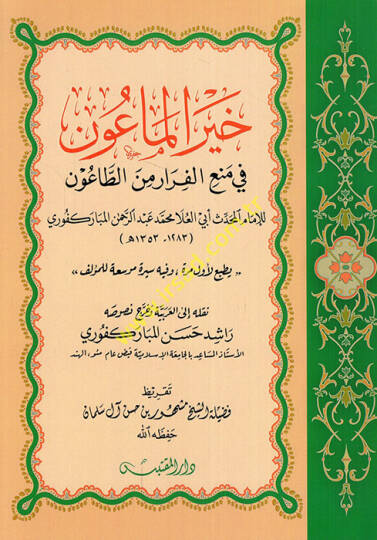 خير الماعون
في منع الفرار من الطاعون
للإمام المحدث أبي العلا محمد عبد الرحمن المباركفوري
(١٢٨٣ - ١٣٥٣ هـ)
« يطبع لأول مرة، وفيه سيرة موسعة للمؤلف »
نقله إلى العربية وخرج نصوصه
راشد حسن المباركفوري
الأستاذ المساعد بالجامعة الإسلامية فيض عام مئو، الهند
تقريظ
فضيلة الشيخ مشهور بن حسن آل سلمان
حفظه الله
دار المقتبس